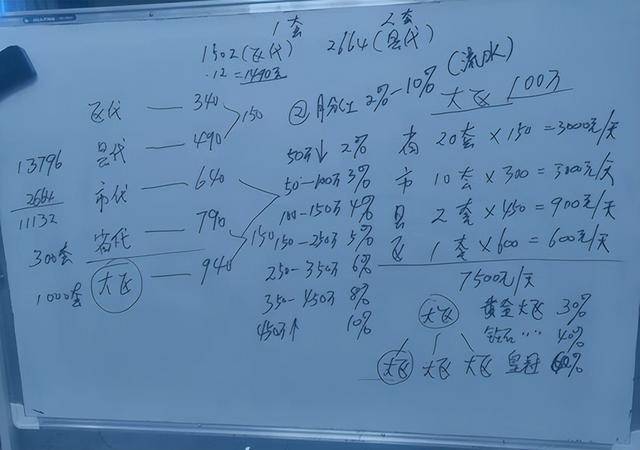 1套 2套
1502(飞代) 2664(县代)
.12=1490元
飞代 — 340
县代 — 490
150
市代 — 640
省代 — 790
大飞 — 940
150
13796
2664
11132
300套
1000套
② 月分红 2%-10% (流水)
50万↓ 2%
50-100万 3%
100-150万 4%
150-250万 5%
250-350万 6%
350-450万 8%
450万↑ 10%
大飞 100万
省 20套×150=3000元/天
市 10套×300=3000元/天
县 2套×450=900元/天
飞 1套×600=600元/天
7500元/天
大飞
大飞 大飞 大飞
黄金大飞 30%
钻石…… 40%
皇冠